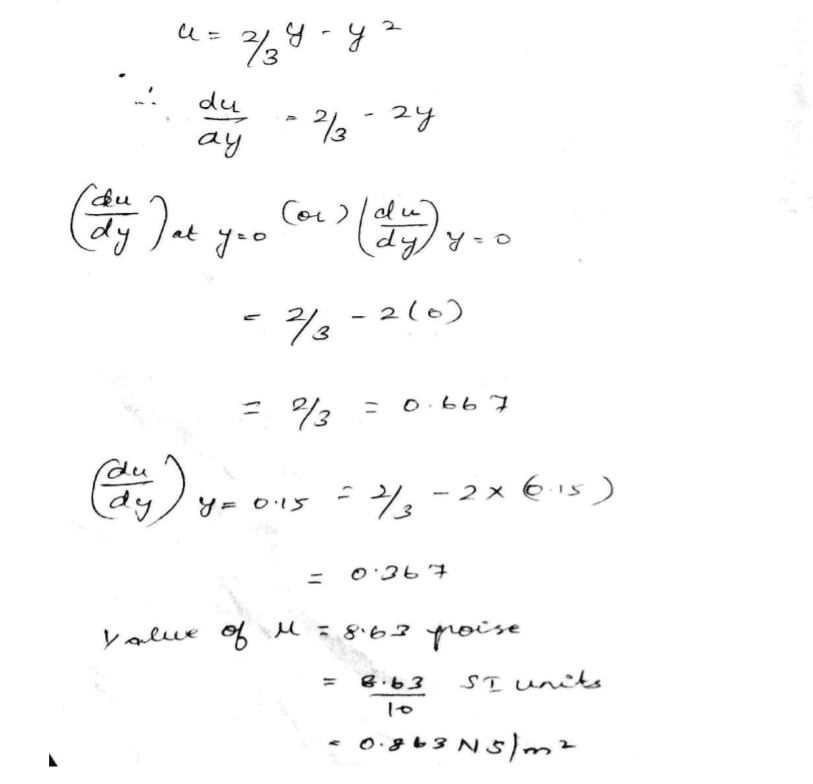 u = 2/3 y - y²
∴ du/dy = 2/3 - 2y
(du/dy) at y=0 (or) (du/dy) y=0
= 2/3 - 2(0)
= 2/3 = 0.667
(du/dy) y=0.15 = 2/3 - 2 × (0.15)
= 0.367
Value of μ = 8.63 poise
= 8.63/10 SI units
= 0.863 NS/m²